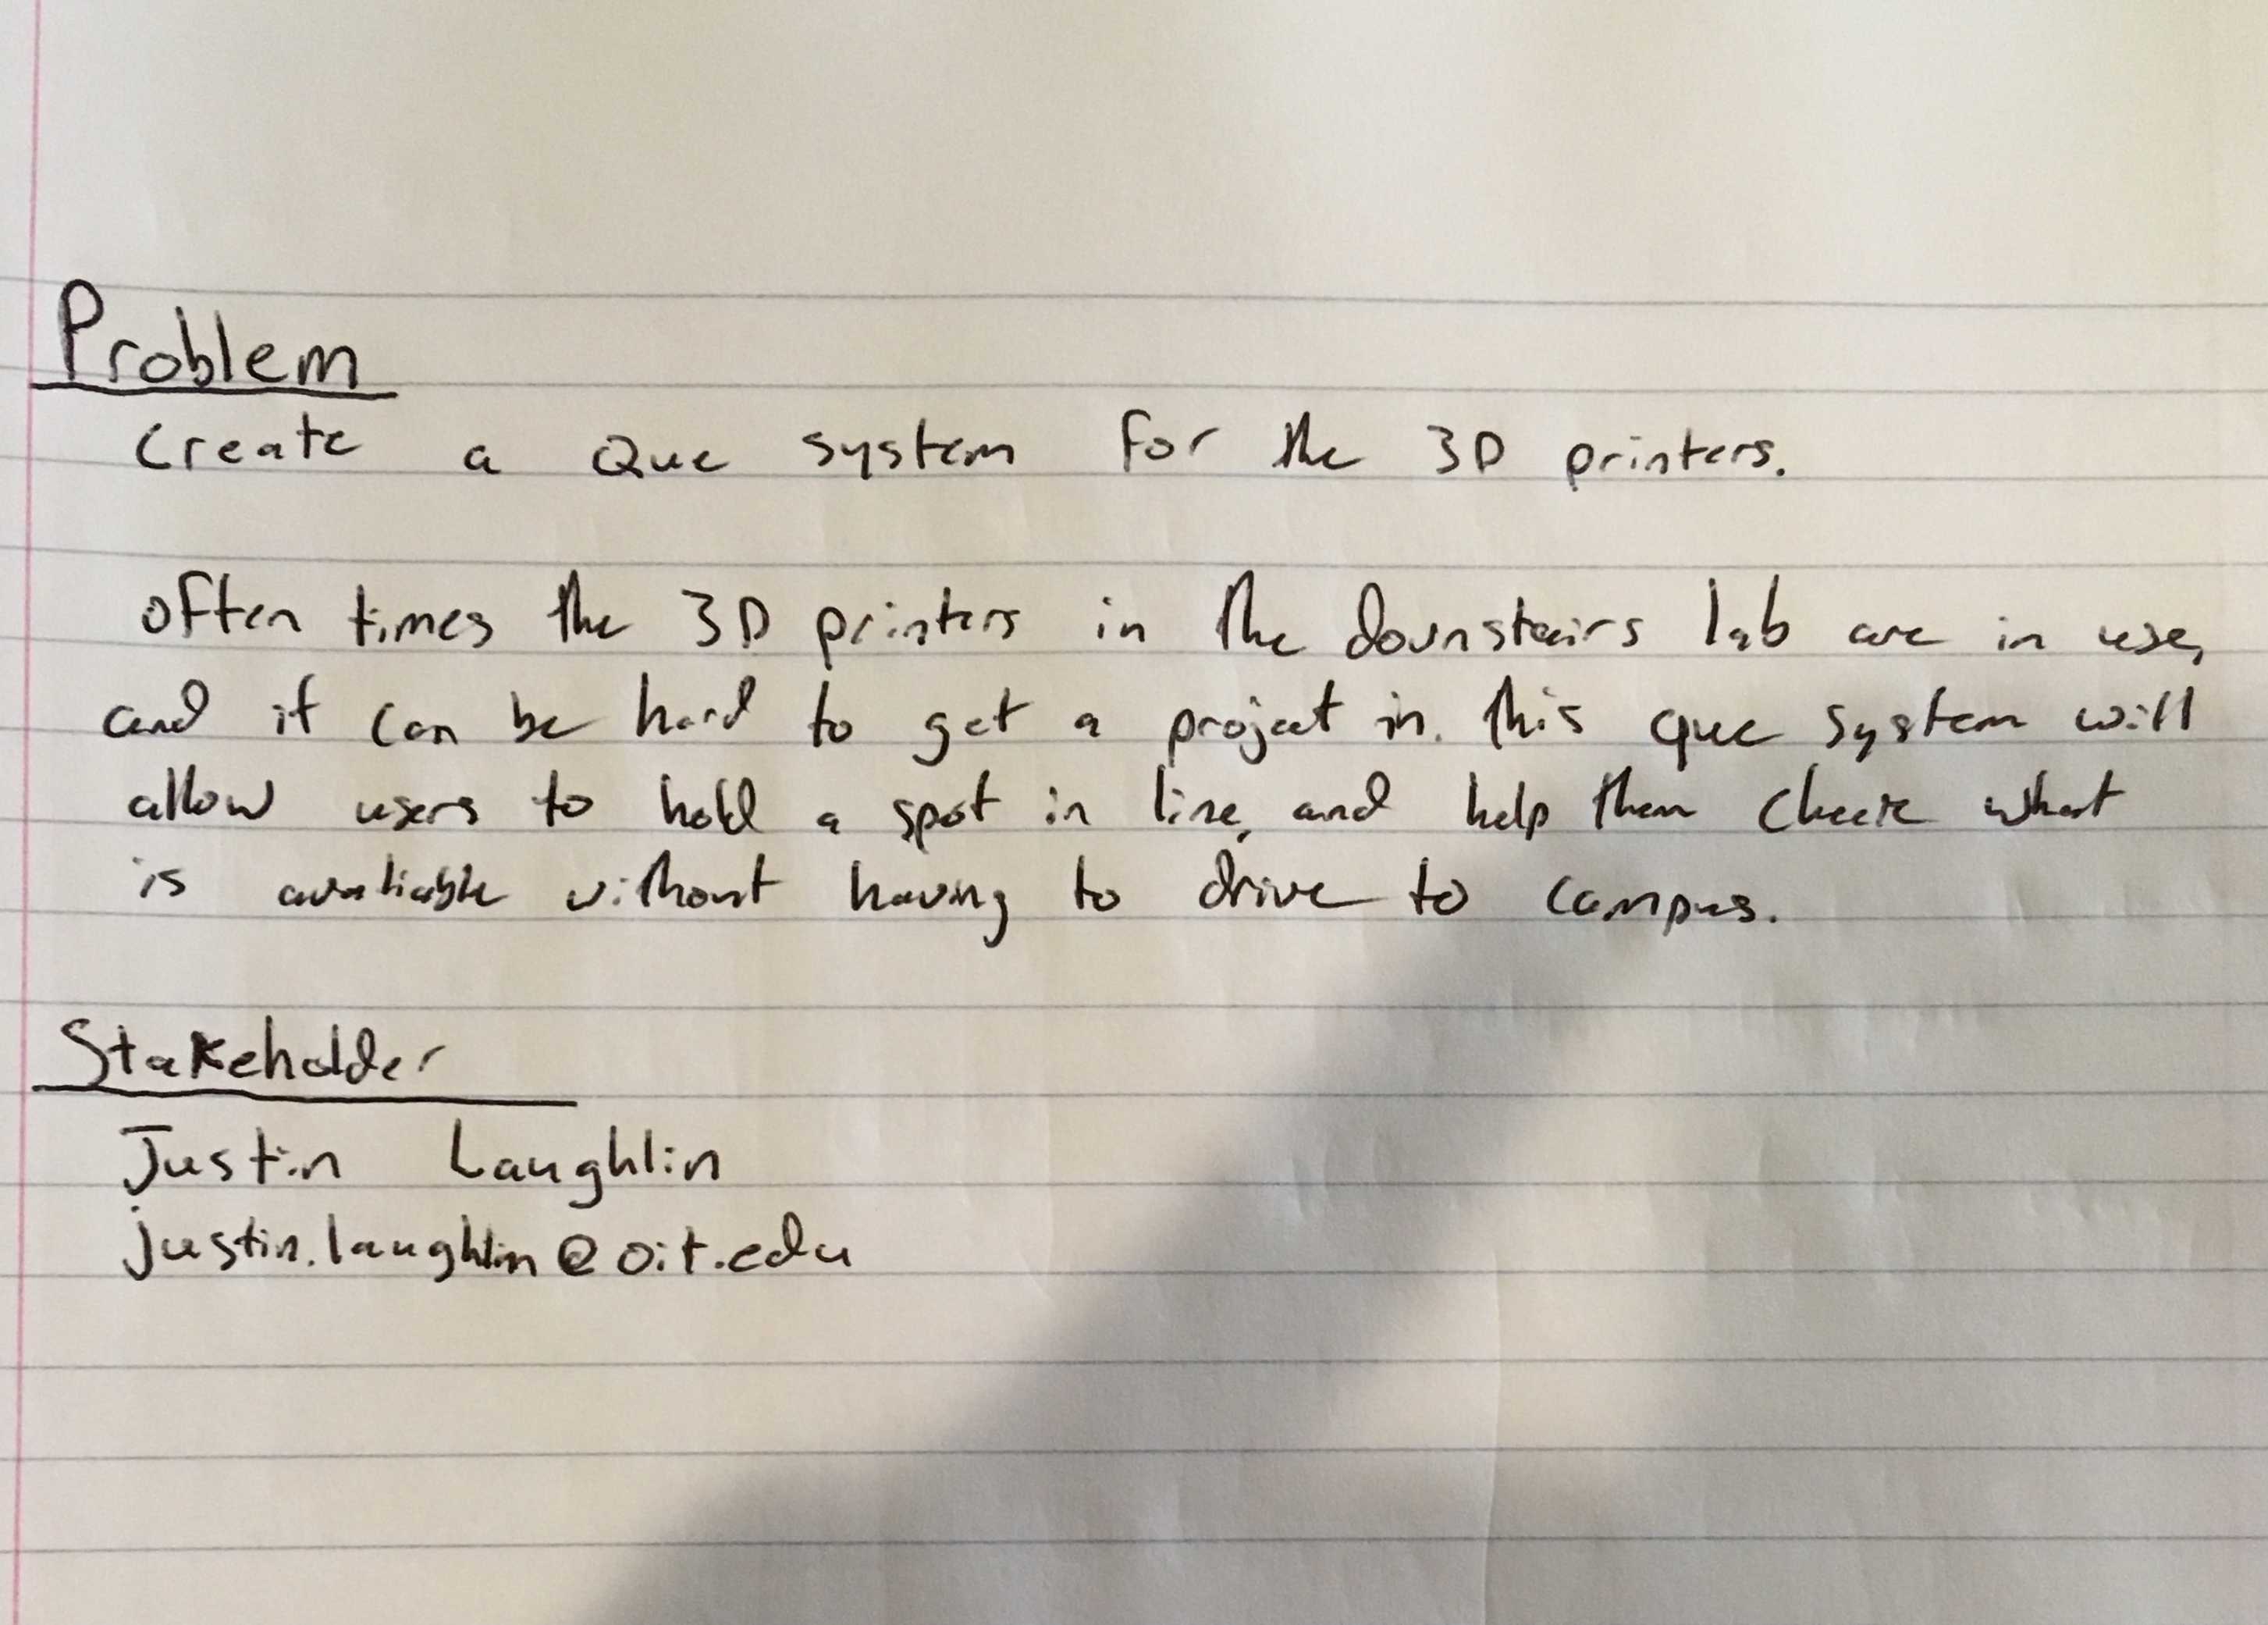 Problem
Create a Que system for the 3D printers.
often times the 3D printers in the downstairs lab are in use,
and it can be hard to get a project in. this que system will
allow users to hold a spot in line, and help them check what
is avaliable without having to drive to campus.
Stakeholder
Justin Laughlin
justin.laughlin@oit.edu